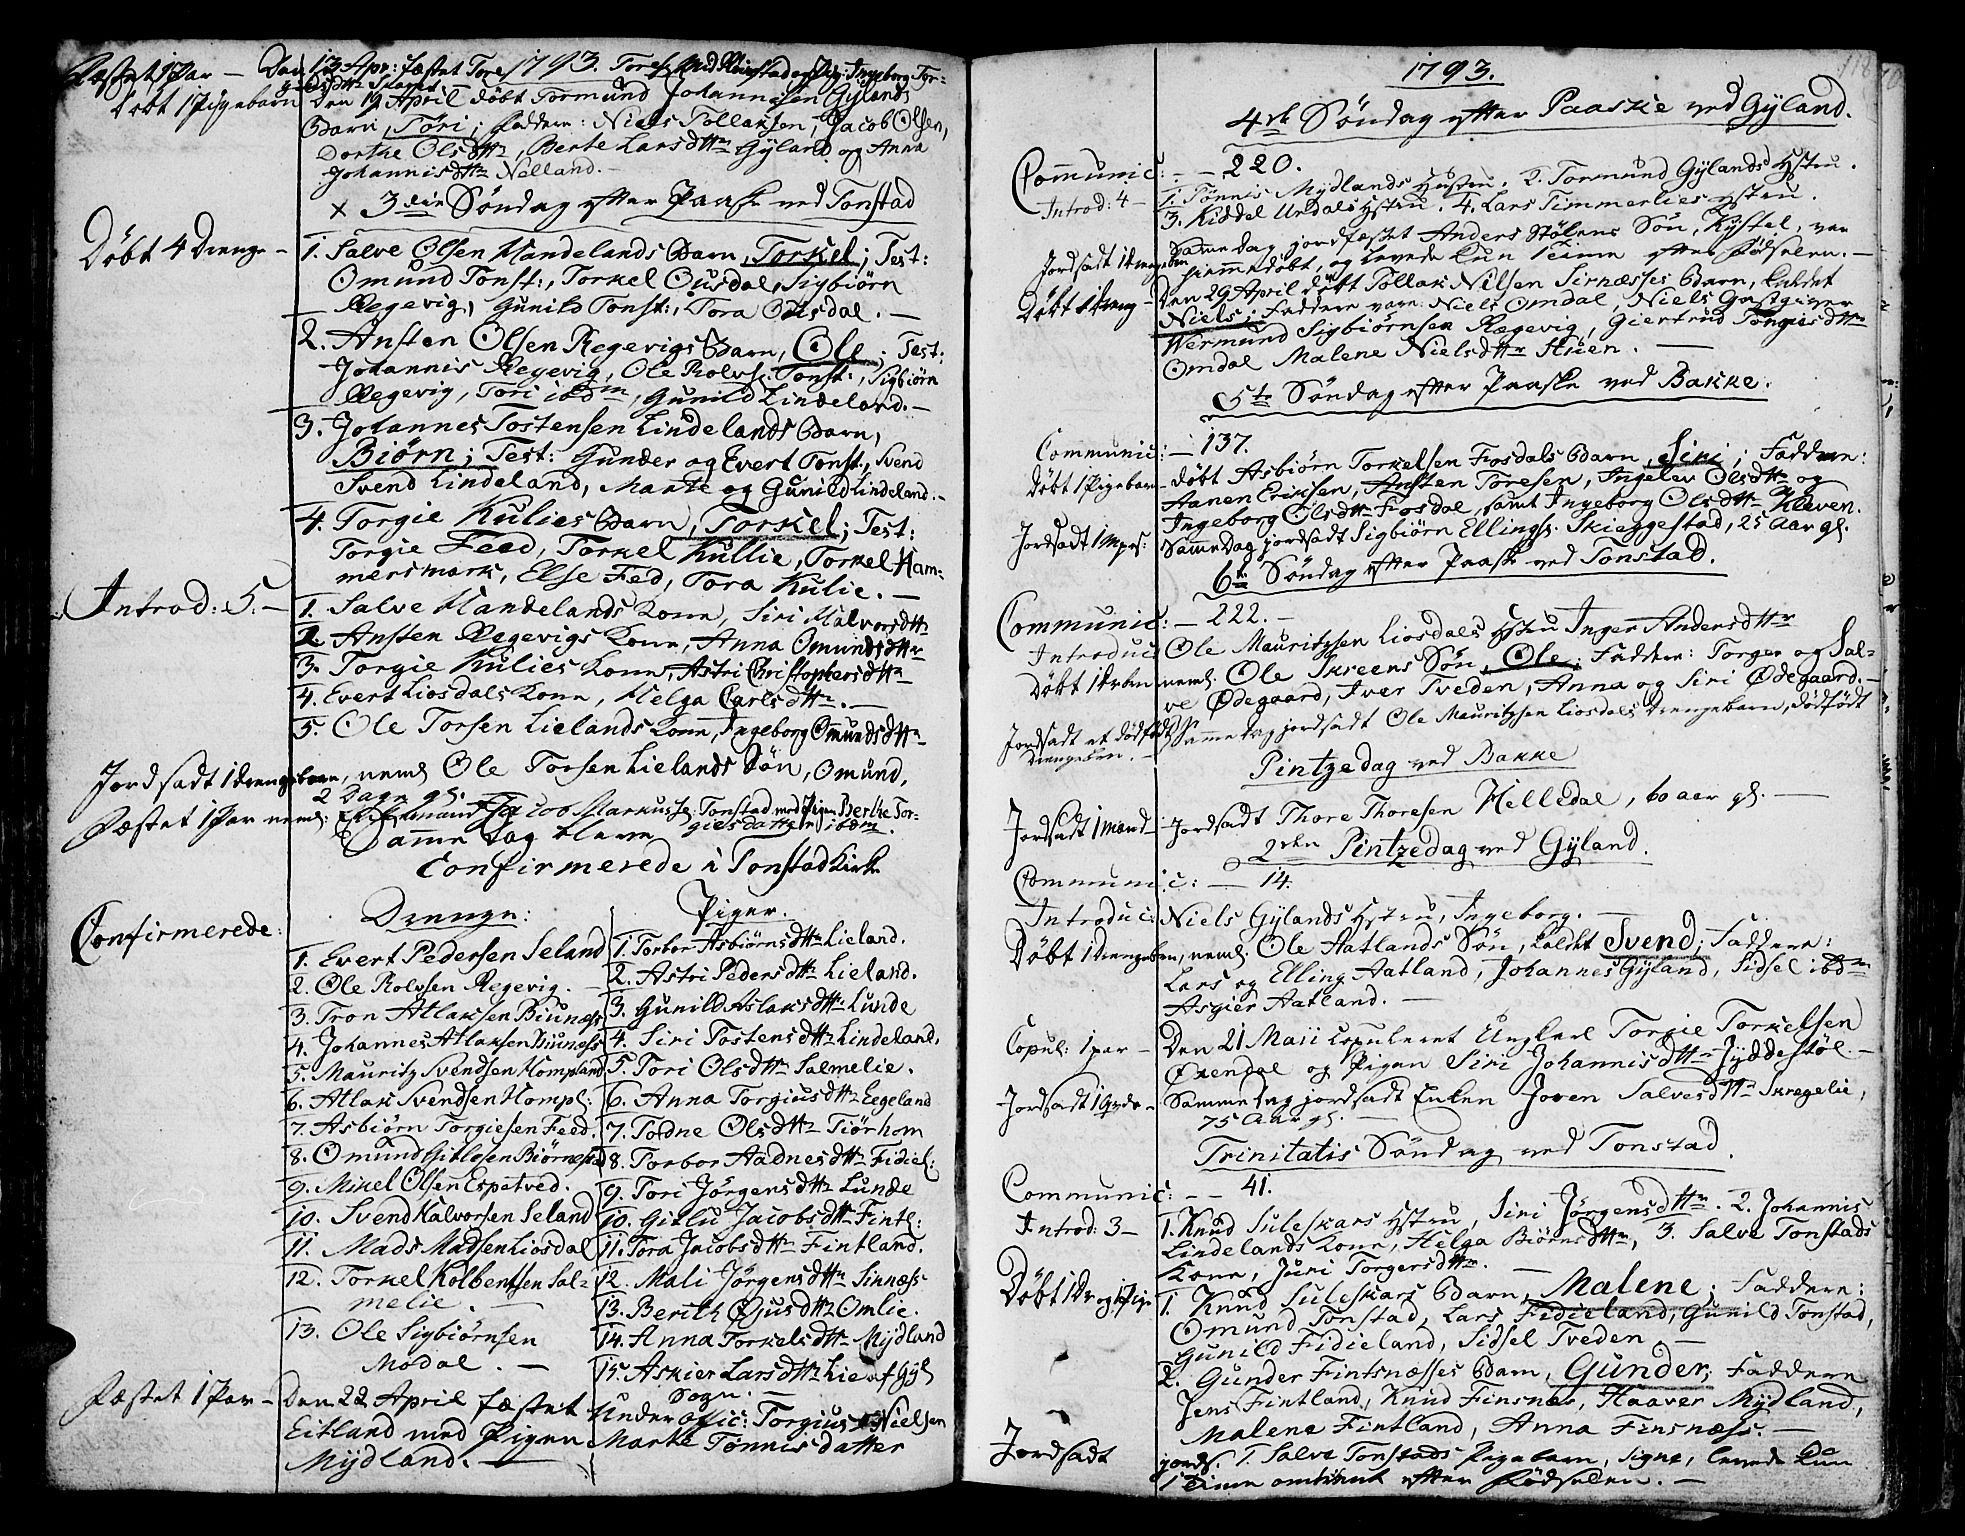 Fæstet 1 Par — Den 13 Apr: fæstet Tore
1793.
Døbt 1 Pigebarn Den 19 April døbt Tormund Johannesen Gylands
Barn, Tori; Faddere: Niels Tollaksen, Jacob Olsen,
Dorthe Olsdttr, Berte Larsdttr Gyland og Anna
Johannisdttr Nelland. —
x 3die Søndag efter Paaske ved Tonstad
Døbt 4 Drenge —
1. Salve Olsen Handelands Barn, Torkel; Test:
Omund Tonst:, Torkel Ousdal, Sigbiørn
Regevig, Gunild Tonst:, Tora Ousdal. —
2. Ansten Olsen Regevigs Barn, Ole; Test:
Johannis Regevig, Ole Rolvs: Tonst:, Sigbiørn
Regevig, Tori ibdm, Gunild Lindeland. —
3. Johannes Tostensen Lindelands Barn,
Biørn; Test: Gunder og Evert Tonst., Svend
Svend Lindeland, Marte og Gunild Lindeland. —
4. Torgie Kulies Barn, Torkel; Test:
Torgie Feed, Torkel Kullie, Torkel Ham=
mersmark, Else Fed, Tora Kulie. —
Introd: 5. —
1. Salve Handelands Kone, Siri Halvorsdttr
2. Ansten Regevigs Kone, Anna Omundsdttr
3. Torgie Kulies Kone, Astri Christophersdttr
4. Evert Liosdals Kone, Helga Carlsdttr. —
5. Ole Torsen Lielands Kone, Ingeborg Omundsdttr
Jordsadt 1 Drengebarn, neml. Ole Torsen Lielands Søn, Omund,
2 Dage gl.
Fæstet 1 Par neml: Enkemand Jacob Markuss: Tonstad med Pigen Berthe Tor=
giesdatter ibdm.
Samme Dag bleve
Confirmerede i Tonstad Kirke
Confirmerede:
Drenge:
1. Evert Pedersen Seland
2. Ole Rolvsen Regevig.
3. Tron Atlaksen Biunæss
4. Johannes Atlaksen Biunæss
5. Mauritz Svendsen Hompland
6. Atlak Svendsen Hompl:
7. Asbiørn Torgiesen Feed.
8. Omund Gitlesen Biørnestad
9. Mikel Olsen Espetved.
10. Svend Halvorsen Seland
11. Mads Madsen Liosdal
12. Torkel Kolbentsen Sal=
melie. —
13. Ole Sigbiørnsen
Modal. —
Piger.
1. Torbor Asbiørnsdttr Lieland.
2. Astri Pedersdttr Lieland.
3. Gunild Aslaksdttr Lunde
4. Siri Tostensdttr Lindeland,
5. Tori Olsdttr Salmelie.
6. Anna Torgiusdttr Eegeland
7. Todne Olsdttr Tiørhom
8. Torbor Aadnesdttr Fidiel:
9. Tori Jørgensdttr Lunde
10. Gitlu Jacobsdttr Fintl:
11. Tora Jacobsdttr Fintland.
12. Mali Jørgensdttr Sinnæss
13. Berith Øjusdttr Omlie.
14. Anna Torkelsdttr Mydland
15. Askier Larsdttr Lie af Gyl
Sogn. —
Fæstet 1 Par — Den 22 April fæstet Under Offic: Torgius Nielsen
Eitland med Pigen Marthe Tønnisdatter
Mydland. —
1793.
4de Søndag efter Paaske ved Gyland.
Communic: — 220.
Introd: 4 — 1. Tønnis Mydlands Hustru, 2. Tormund Gylands Hstru.
3. Kiddel Urdals Hstru. 4. Lars Timmerlies Hstru.
Jordsadt 1 Drengebn Samme Dag jordfæstet Anders Stølens Søn, Kystel, var
hiemmedøbt, og levede kun 1 Time efter Fødselen. —
Døbt 1 Dreng — Den 29 April døbt Tollak Nilsen Sirnæsses Barn, kaldet
Niels; Faddere vare Niels Omdal, Niels Gastgiver
Wermund Sigbiørnsen Regevig, Giertrud Tongiesdttr
Omdal Malene Nielsdttr Huen. —
5te Søndag efter Paaske ved Bakke.
Communic: — 137.
Døbt 1 Pigebarn — døbt Asbiørn Torkelsen Fosdals Barn, Siri; Faddere:
Aanen Eriksen, Ansten Toresen, Ingelev Olsdttr og
Ingeborg Olsdttr Fosdal, samt Ingeborg Olsdttr Kleven.
Jordsadt 1 Mpers: Samme Dag jordsadt Sigbiørn Ellings: Skieggestad, 25 Aar gl.
6te Søndag efter Paaske ved Tonstad.
Communic: — 222. —
Introduc: Ole Mauritzsen Liosdals Hstru Inger Andersdttr
Døbt 1 Drbn neml. Ole Skreens Søn, Ole; Faddere: Torger og Sal=
ve Ødegaard, Iver Tveden, Anna og Siri Ødegaard. —
Jordsadt et dødfødt Samme Dag jordsadt Ole Mauritzsen Liosdals Drengebarn, dødfødt
Drengebn. —
Pintzedag ved Bakke
Jordsadt 1 Mand — Jordsadt Thore Thoresen Helledal, 60 aar gl. —
2den Pintzedag ved Gyland.
Communic: — 14.
Introduc: Niels Gylands Hstru, Ingeborg. —
Døbt 1 Drengebn, neml. Ole Aatlands Søn, kaldet Svend; Faddere:
Lars og Elling Aatland, Johannes Gyland, Sidsel ibdm
Asgier Aatland. —
Copul: 1 par — Den 21 Maii copuleret Ungkarl Torgie Torkelsen
Øxendal og Pigen Siri Johannisdttr Jyddestøl. —
Jordsadt 1 Qvde — Samme Dag jordsadt Enken Joren Salvesdttr Skregelie,
75 Aar gl. —
Trinitatis Søndag ved Tonstad.
Communic: — — 41.
Introd: 3 — 1. Knud Suleskars Hstru, Siri Jørgensdttr. 2. Johannis
Lindelands Kone, Helga Biørnsdttr, 3. Salve Tonstads
Kone, Juri Torgersdttr. —
Døbt 1 Dr og 1 Pige 1. Knud Suleskars Barn, Malene; Faddere:
Omund Tonstad, Lars Fidieland, Gunild Tonstad,
Gunild Fidieland, Sidsel Tveden. —
2. Gunder Fintsnæsses Barn, Gunder; Faddere
Jens Fintland, Knud Finsnæs, Haaver Mydland,
Malene Fintland, Anna Finsnæss. —
Jordsadt jords. 1. Salve Tonstads Pigebarn, Signe, levede kun
1 Time omtrent efter Fødselen. —